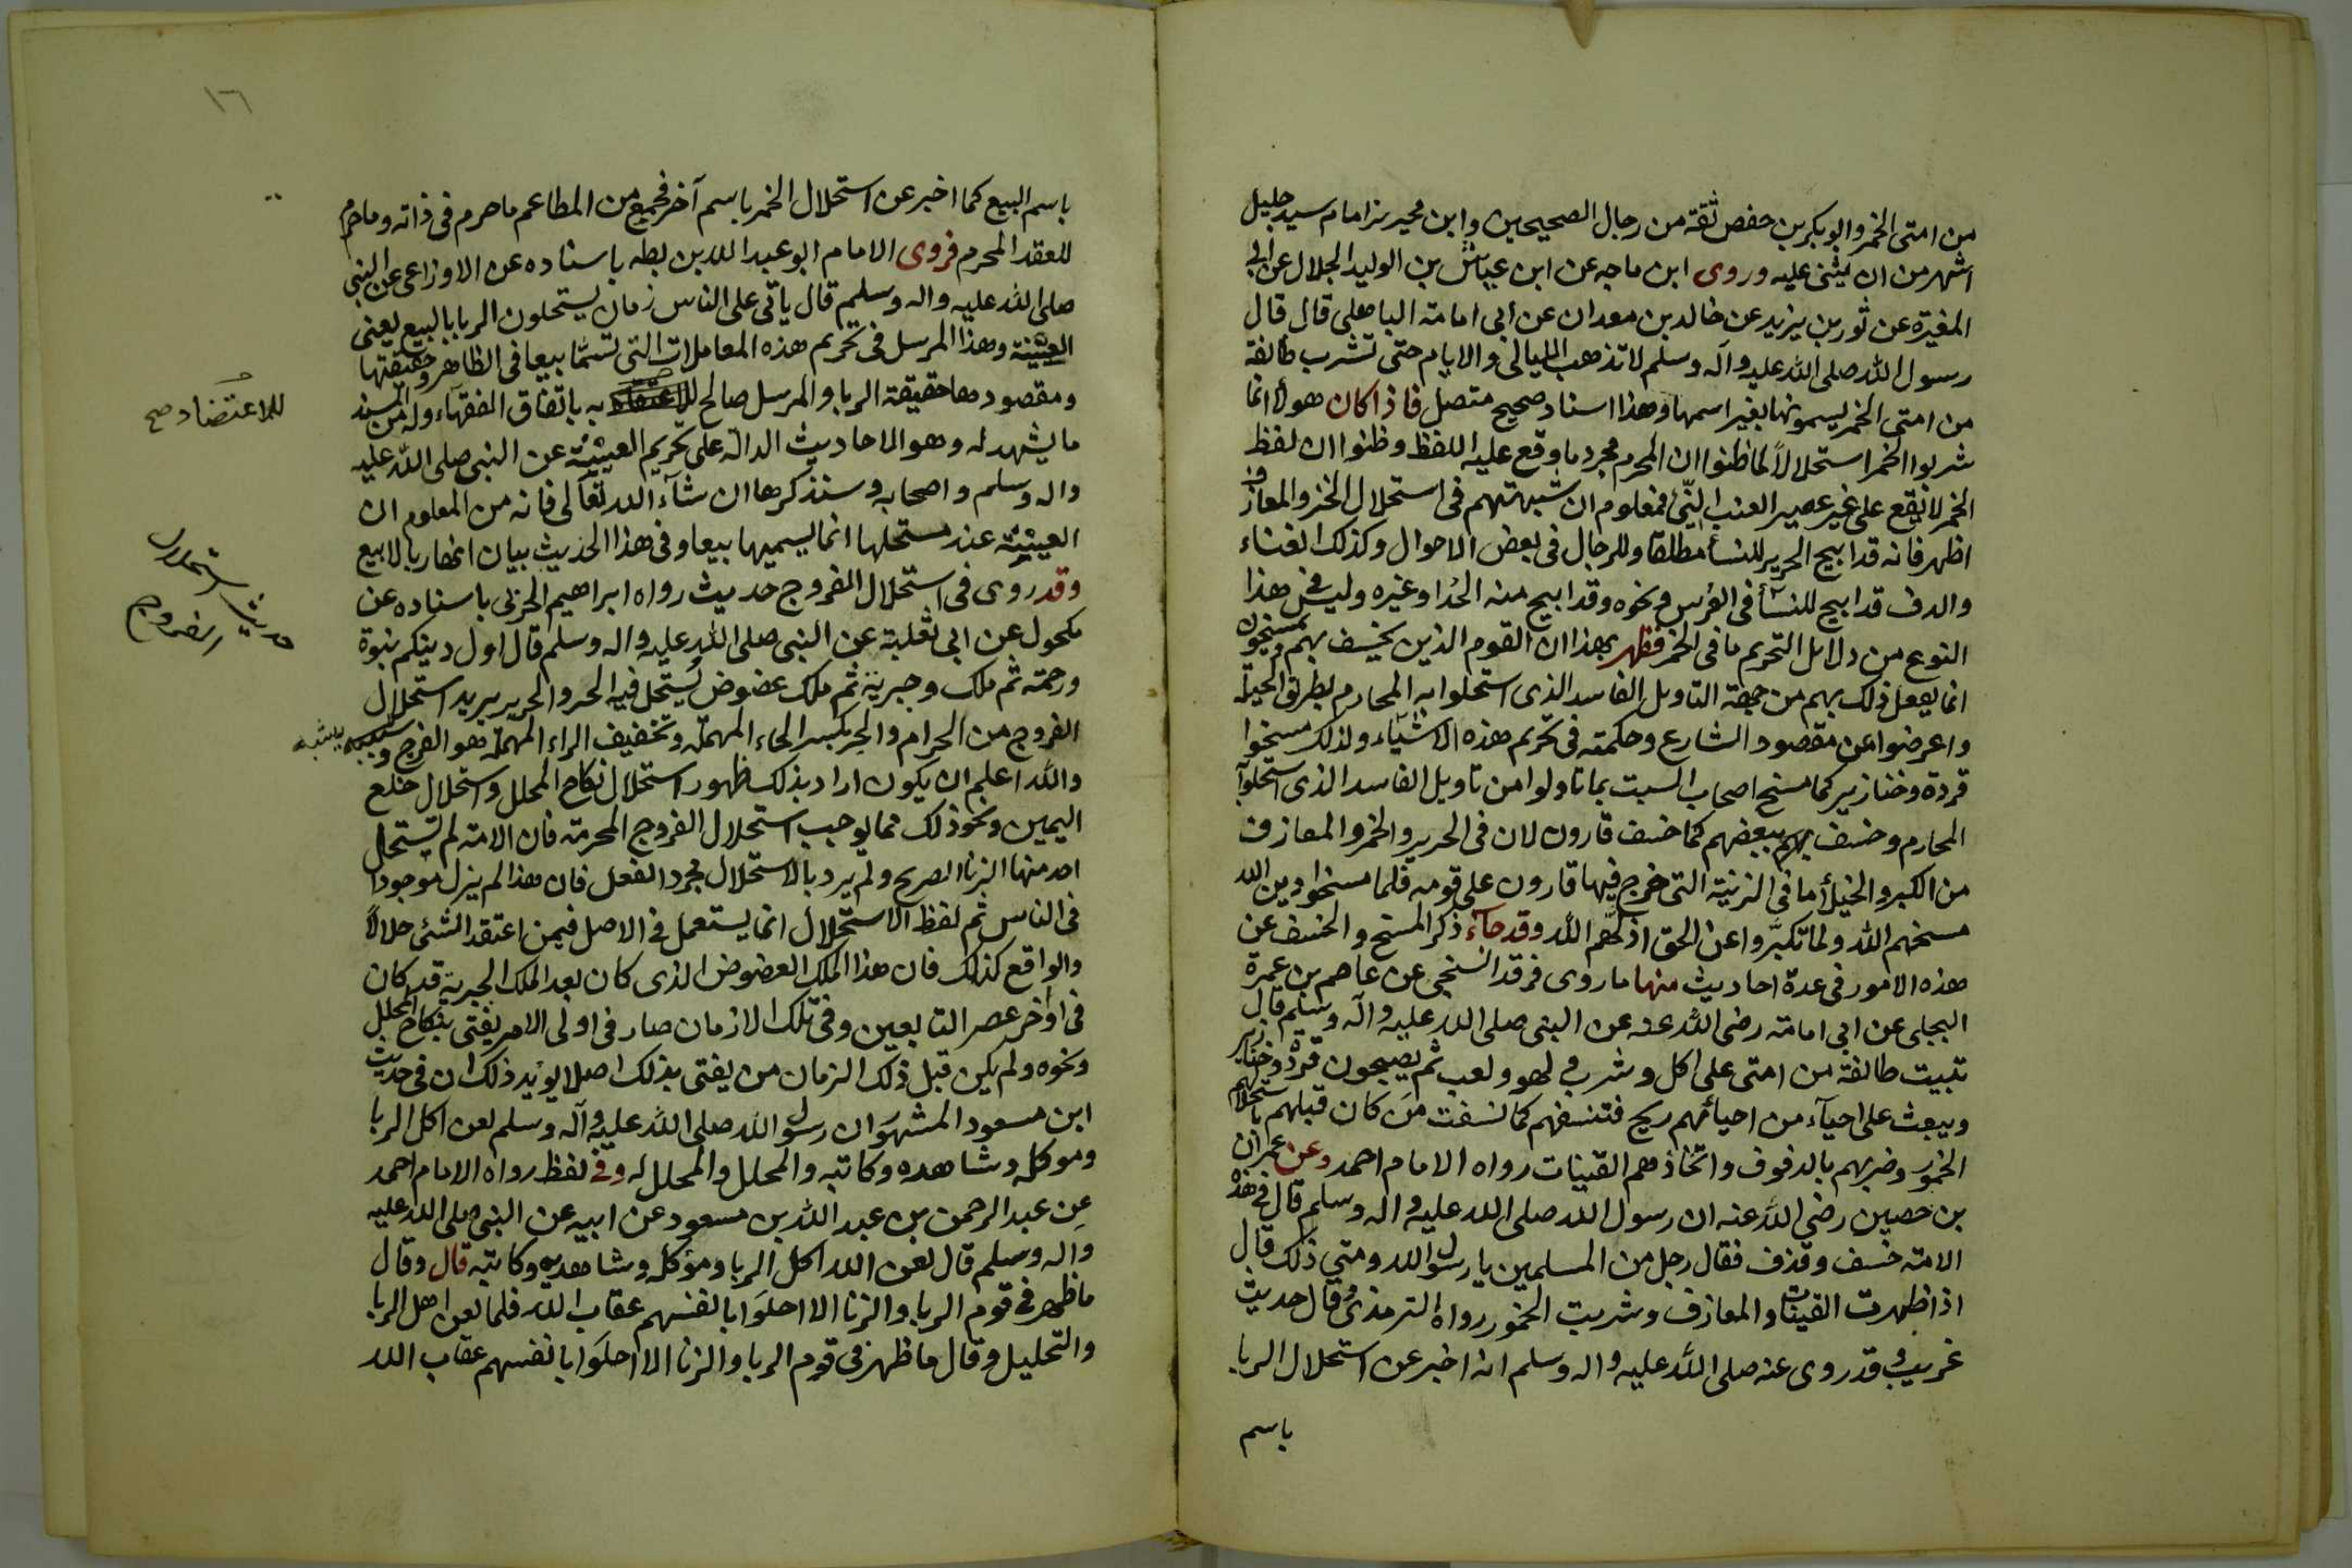 من امتى الخمر وابو بكر بن حفص ثقة من رجال الصحيحين وابن محيريز امام سيد جليل
اشهر من ان يثنى عليه وروى ابن ماجه عن ابن عباس بن الوليد الجلال عن ابى
المغيرة عن ثور بن يزيد عن خالد بن معدان عن أبى امامة الباهلى قال قال
رسول الله صلى الله عليه وآله وسلم لا تذهب الليالى والايام حتى تشرب طائفة
من امتى الخمر يسمونها بغير اسمها وهذا اسناد صحيح متصل فاذا كان هولأ انما
شربوا الخمر استحلالاً لما ظنوا ان المحرم مجرد ما وقع عليه اللفظ وظنوا ان لفظ
الخمر لا يقع على غير عصير العنب النّى فمعلوم ان شبهتهم فى استحلال الخز والمعازف
اظهر فانه قد ابيح الحرير للنسأ مطلقا وللرجال فى بعض الاحوال وكذلك الغناء
والدف قد ابيح للنسأ فى العُرس ونحوه وقد ابيح منه الحُدا وغيره وليس فى هذا
النوع من دلائل التحريم ما فى الخمر فظهر بهذا ان القوم الذين يخسف بهم ويمسخون
انما يفعل ذلك بهم من جهة التاويل الفاسد الذى استحلوا به المحارم بطريق الحيلة
واعرضوا عن مقصود الشارع وحكمته فى تحريم هذه الاشيآء ولذلك مسخوا
قردة وخنازير كما مسخ اصحاب السبت بما تاولوا من تاويل الفاسد الذى استحلوا
المحارم وخسف بهم ببعضهم كما خسف قارون لان فى الحرير والخمر والمعازف
من الكبر والخيلأ ما فى الزنية التى خرج فيها قارون على قومه فلما مسخوا دين الله
مسخهم الله ولما تكبّروا عن الحق اذلّهم الله وقد جآء ذكر المسخ والخسف عن
هذه الامور فى عدة احاديث منها ما روى فرقد السنجى عن عاصم بن عمرة
البجلى عن ابى امامة رضى الله عنه عن النبى صلى الله عليه وآله وسلم قال
تبيت طائفة من امتى على اكل وشرب ولهو ولعب ثم يصبحون قردة وخنازير
ويبعث على احيآء من احيائهم ريح فتنسفهم كما نسفت من كان قبلهم باستحلالهم
الخمور وضربهم بالدفوف واتخاذهم القينات رواه الامام احمد وعن عمران
بن حصين رضى الله عنه ان رسول الله صلى الله عليه واله وسلم قال فى هذه
الامة خسف وقذف فقال رجل من المسلمين يا رسول الله ومتى ذلك قال
اذا ظهرت القينات والمعازف وشربت الخمور رواه الترمذى وقال حديث
غريب وقد روى عنه صلى الله عليه واله وسلم انه اخبر عن استحلال الربا
باسم
١٦
باسم البيع كما اخبر عن استحلال الخمر باسم آخر فجمع من المطاعم ما حرم فى ذاته وما حرم
للعقد المحرم فروى الامام ابو عبد الله بن بطه باسناده عن الاوزاعى عن النبى
صلى الله عليه واله وسلم قال ياتى على الناس زمان يستحلون الربا بالبيع يعنى
العينة وهذا المرسل فى تحريم هذه المعاملات التى تسمّا بيعا فى الظاهر وحقيقتها
ومقصودها حقيقة الربا والمرسل صالح به باتفاق الفقهاء وله من المسند
للاعتضاد صح
ما يشهد له وهو الاحاديث الدالة على تحريم العينة عن النبى صلى الله عليه
واله وسلم واصحابه وسنذكرها ان شآء الله تعالى فانه من المعلوم ان
العينة عند مستحلها انما يسميها بيعا وفى هذا الحديث بيان انها ربا لا بيع
وقد روى فى استحلال الفروج حديث رواه ابراهيم الحربى باسناده عن
حديث استحلال الفروج
مكحول عن ابى ثعلبة عن النبى صلى الله عليه واله وسلم قال اول دينكم نبوة
ورحمة ثم ملك وجبرية ثم ملك عضوض يُستحل فيه الحر والحرير يريد استحلال
الفروج من الحرام والحر بكسر الحاء المهملة وتخفيف الراء المهملة هو الفرج ويشبه
يشبه
والله اعلم ان يكون اراد بذلك ظهور استحلال نكاح المحلل واستحلال خلع
اليمين ونحو ذلك مما يوجب استحلال الفروج المحرمة فان الامة لم يستحل
احد منها الزنا الصريح ولم يرد بالاستحلال مجرد الفعل فان هذا لم يزل موجوداً
فى الناس ثم لفظ الاستحلال انما يستعمل فى الاصل فيمن اعتقد الشئ حلالاً
والواقع كذلك فان هذا الملك العضوض الذى كان بعد الملك الجبرية قد كان
فى اواخر عصر التابعين وفى تلك الازمان صار فى اولى الامر يفتى بنكاح المحلل
ونحوه ولم يكن قبل ذلك الزمان من يفتى بذلك اصلا يويد ذلك ان فى حديث
ابن مسعود المشهور ان رسول الله صلى الله عليه وآله وسلم لعن اكل الربا
وموكله وشاهده وكاتبه والمحلل والمحلل له وفى لفظ رواه الامام احمد
عن عبد الرحمن بن عبد الله بن مسعود عن ابيه عن النبى صلى الله عليه
واله وسلم قال لعن الله اكل الربا وموكله وشاهديه وكاتبه قال وقال
ما ظهر فى قوم الربا والزنا الا احلوا بانفسهم عقاب الله فلما لعن اهل الربا
والتحليل وقال ما ظهر فى قوم الربا والزنا الا احلوا بانفسهم عقاب الله